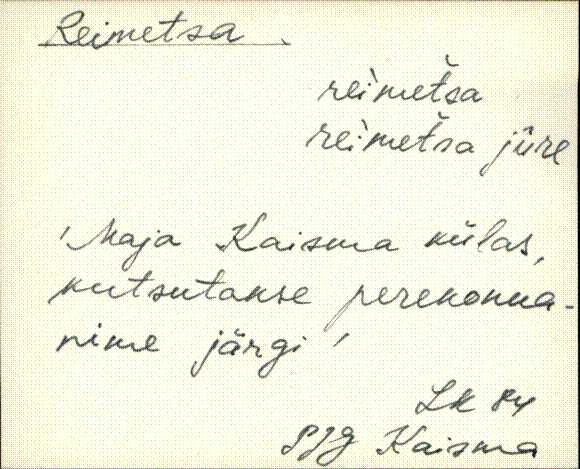 Reimetsa.
reìmeťsa
reìmeťsa jüre
'Maja Kaisma külas,
kutsutakse perekonna-
nime järgi'
LK 84
PJg Kaisma